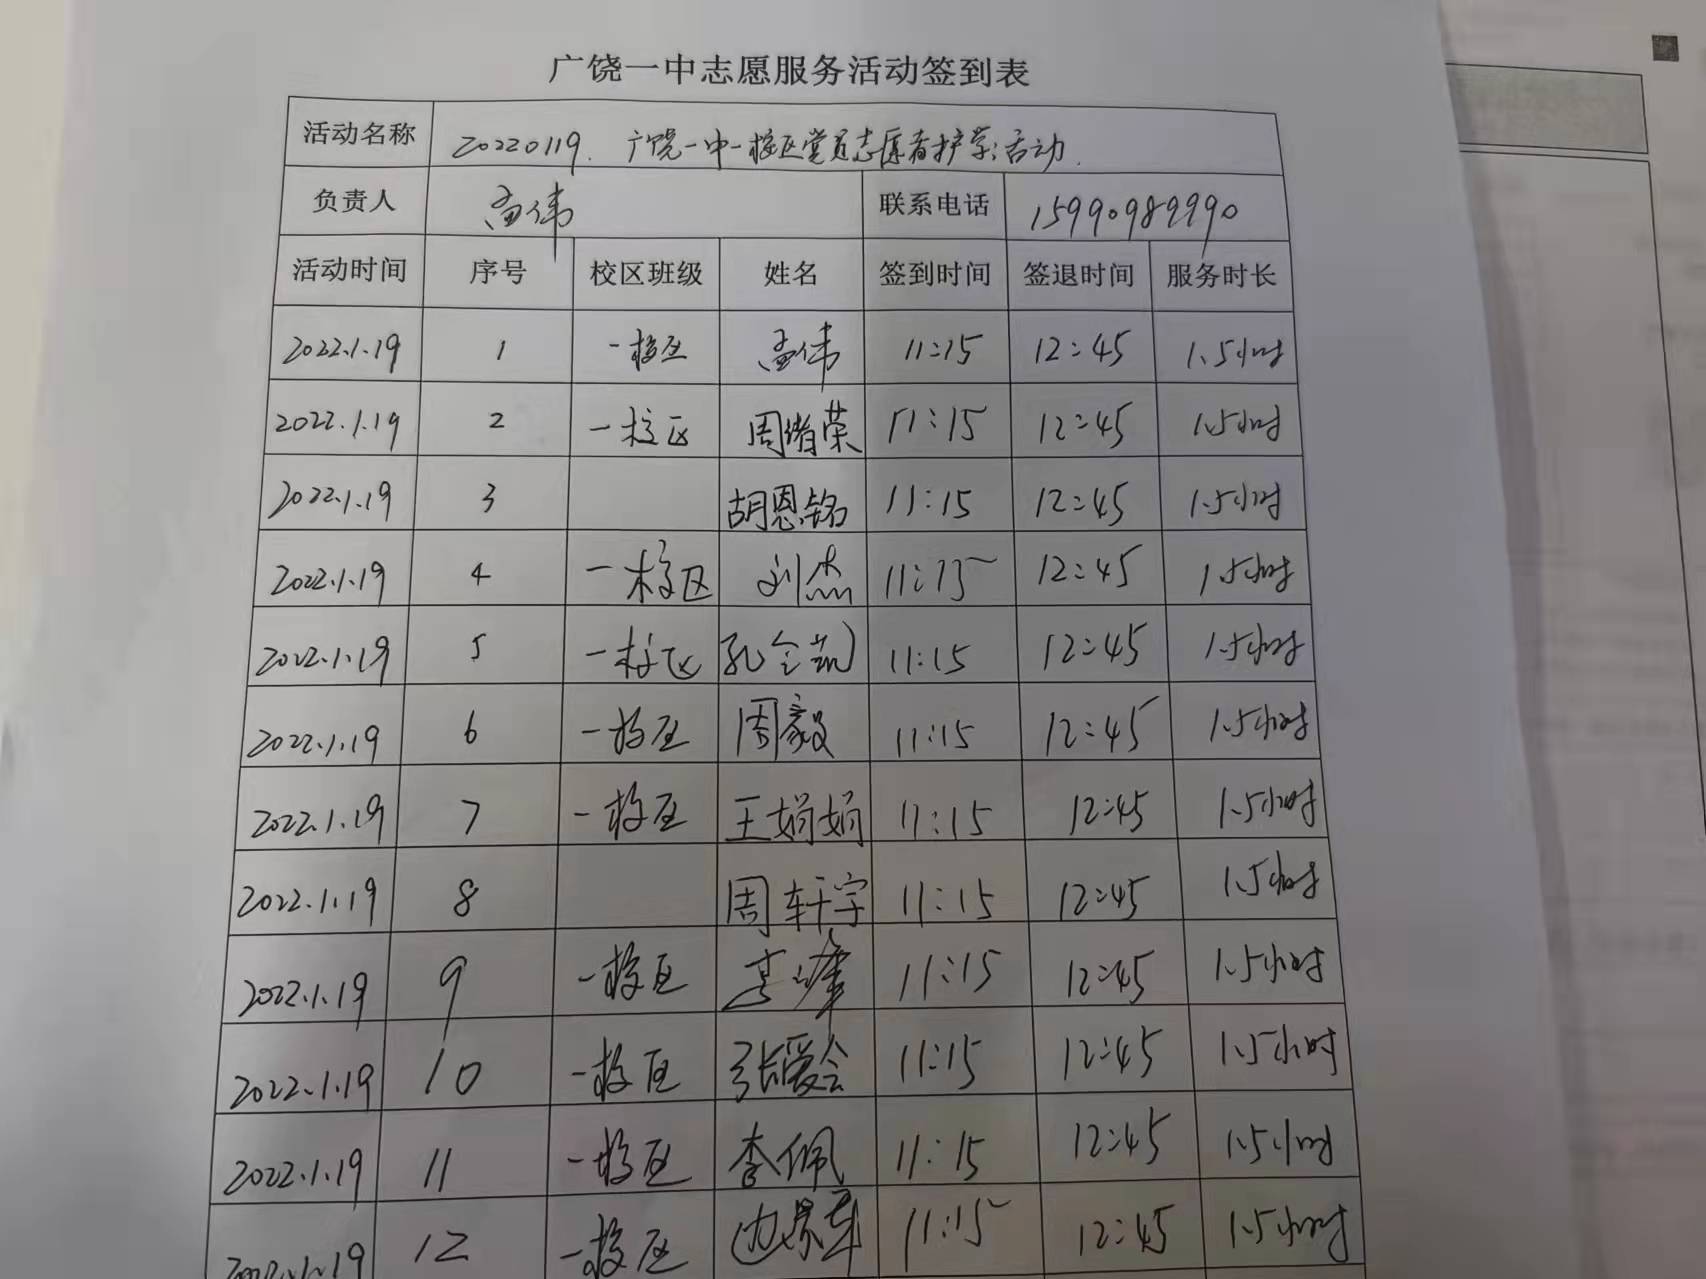 广饶一中志愿服务活动签到表
活动名称 20220119. 广饶一中一校区党员志愿者护学活动.
负责人 孟伟 联系电话 15990989990
活动时间 序号 校区班级 姓名 签到时间 签退时间 服务时长
2022.1.19 1 一校区 孟伟 11:15 12:45 1.5小时
2022.1.19 2 一校区 周绪荣 11:15 12:45 1.5小时
2022.1.19 3 胡恩铭 11:15 12:45 1.5小时
2022.1.19 4 一校区 刘杰 11:15 12:45 1.5小时
2022.1.19 5 一校区 孔令凯 11:15 12:45 1.5小时
2022.1.19 6 一校区 周毅 11:15 12:45 1.5小时
2022.1.19 7 一校区 王娟娟 11:15 12:45 1.5小时
2022.1.19 8 周轩宇 11:15 12:45 1.5小时
2022.1.19 9 一校区 11:15 12:45 1.5小时
2022.1.19 10 一校区 张爱会 11:15 12:45 1.5小时
2022.1.19 11 一校区 李佩 11:15 12:45 1.5小时
2022.1.19 12 一校区 11:15 12:45 1.5小时